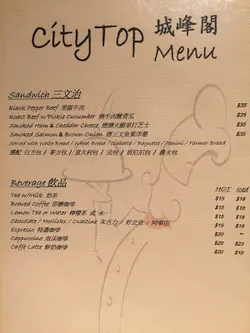 CityTop 城峰閣
Menu
Sandwich 三文治
Black Pepper Beef 黑椒牛肉 $35
Roast Beef w/Pickle Cucumber 燒牛肉酸青瓜 $35
Smoked Ham & Cheddar Cheese 煙燻火腿車打芝士 $35
Smoked Salmon & Brown Onion 煙三文魚紫洋蔥 $35
Served with White Bread / Wheat Bread / Ciabatta / Baguttes / Panini / Farmer Bread
選配 白方包 / 麥方包 / 意大利包 / 法包 / 農夫包
Beverage 飲品
HOT Iced
Tea w/Milk 奶茶 $15 $18
Brewed Coffee 即磨咖啡 $15 $18
Lemon Tea or Water 檸檬茶 或 水 $15 $18
Chocolate / Horlicks / Ovaltine 朱古力 / 好立克 / 阿華田 $15 $18
Espresso 特濃咖啡 $20 ~
Cappuccino 泡沫咖啡 $20 $25
Caffe Latte 鮮奶咖啡 $15 $18